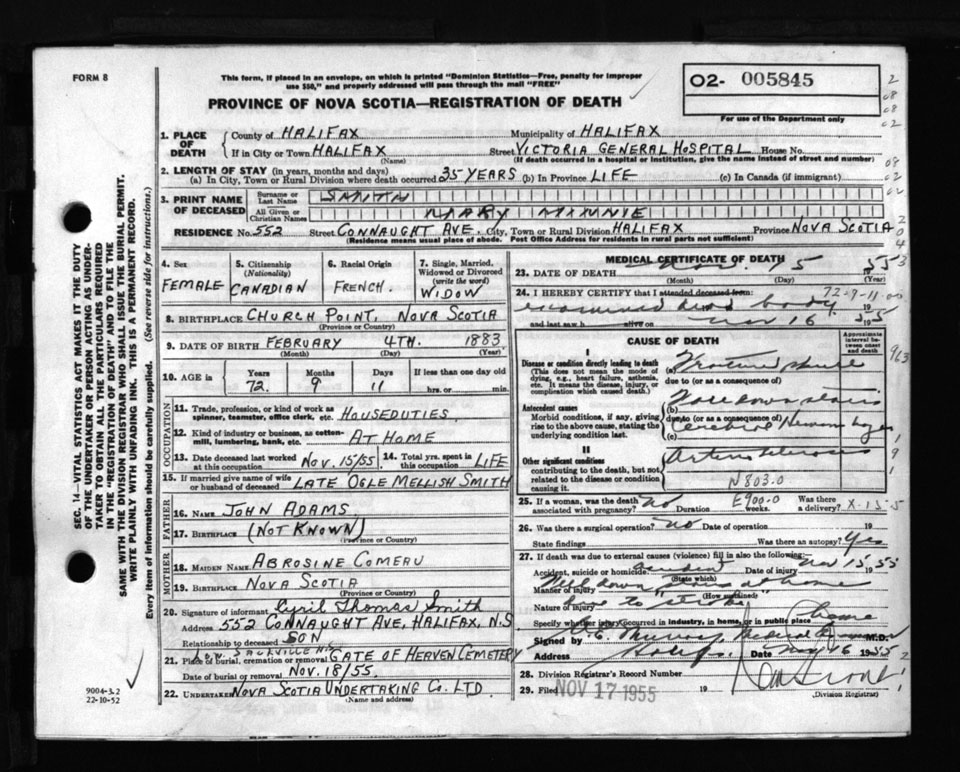 FORM 8
This form, if placed in an envelope, on which is printed "Dominion Statistics—Free, penalty for improper
use $50," and properly addressed will pass through the mail "FREE"
O2- 005845
For use of the Department only
PROVINCE OF NOVA SCOTIA—REGISTRATION OF DEATH
1. PLACE OF DEATH
County of HALIFAX Municipality of HALIFAX
If in City or Town HALIFAX (Name) Street VICTORIA GENERAL HOSPITAL House No.
(If death occurred in a hospital or institution, give the name instead of street and number)
2. LENGTH OF STAY (in years, months and days)
(a) In City, Town or Rural Division where death occurred 35 YEARS (b) In Province LIFE (c) In Canada (if immigrant)
3. PRINT NAME OF DECEASED
Surname or Last Name SMITH
All Given or Christian Names MARY MINNIE
RESIDENCE No. 552 Street CONNAUGHT AVE. City, Town or Rural Division HALIFAX Province NOVA SCOTIA
(Residence means usual place of abode. Post Office Address for residents in rural parts not sufficient)
4. Sex FEMALE
5. Citizenship (Nationality) CANADIAN
6. Racial Origin FRENCH.
7. Single, Married, Widowed or Divorced (write the word) WIDOW
8. BIRTHPLACE CHURCH POINT, NOVA SCOTIA
(Province or Country)
9. DATE OF BIRTH FEBRUARY 4TH. 1883
(Month) (Day) (Year)
10. AGE in Years 72. Months 9 Days 11 If less than one day old
hrs. or min.
OCCUPATION
11. Trade, profession, or kind of work as
spinner, teamster, office clerk, etc. HOUSEDUTIES
12. Kind of industry or business, as cotton-
mill, lumbering, bank, etc. AT HOME
13. Date deceased last worked
at this occupation NOV. 15/55
14. Total yrs. spent in
this occupation LIFE
15. If married give name of wife
or husband of deceased LATE OGLE MELLISH SMITH
FATHER
16. NAME JOHN ADAMS
17. BIRTHPLACE (NOT KNOWN)
(Province or Country)
MOTHER
18. MAIDEN NAME ABROSINE COMEAU
19. BIRTHPLACE NOVA SCOTIA
(Province or Country)
20. Signature of informant Cyril Thomas Smith
Address 552 CONNAUGHT AVE, HALIFAX, N.S
Relationship to deceased SON
SACKVILLE N.S
21. Place of burial, cremation or removal GATE OF HEAVEN CEMETERY
Date of burial or removal NOV. 18/55.
22. UNDERTAKER NOVA SCOTIA UNDERTAKING CO. LTD.
(Name and address)
MEDICAL CERTIFICATE OF DEATH
23. DATE OF DEATH Nov. 15 1955
(Month) (Day) (Year)
24. I HEREBY CERTIFY that I attended deceased from:
examined dead body
72-9-11-00
and last saw h alive on Nov 16 1955
CAUSE OF DEATH
Approximate interval between onset and death
I
Disease or condition directly leading to death
(This does not mean the mode of
dying, e.g., heart failure, asthenia,
etc. It means the disease, injury, or
complication which caused death.)
(a) Fractured skull
due to (or as a consequence of)
Antecedent causes
Morbid conditions, if any, giving
rise to the above cause, stating the
underlying condition last.
(b) down stairs
due to (or as a consequence of)
(c) Cerebral
II
Other significant conditions
contributing to the death, but not
related to the disease or condition
causing it.
Arterio sclerosis
N803.0
25. If a woman, was the death
associated with pregnancy? No Duration weeks. Was there
a delivery?
E900.0
X-15-5
26. Was there a surgical operation? No Date of operation 19
State findings Was there an autopsy? Yes
27. If death was due to external causes (violence) fill in also the following:
Accident, suicide or homicide Accident Nov 15 1955
(State which)
Manner of injury Fell down stairs at home
(How sustained)
Nature of injury due to "stroke"
Specify whether injury occurred in industry, in home, or in public place home
Signed by Murray Medical M.D.
Address Halifax Date Nov 16 1955
28. Division Registrar's Record Number
29. Filed NOV 17 1955 19
(Division Registrar)
SEC. 14—VITAL STATISTICS ACT MAKES IT THE DUTY
OF THE UNDERTAKER OR PERSON ACTING AS UNDER-
TAKER TO OBTAIN ALL THE PARTICULARS REQUIRED
IN THE "REGISTRATION OF DEATH" AND TO FILE THE
SAME WITH THE DIVISION REGISTRAR WHO SHALL ISSUE THE BURIAL PERMIT.
WRITE PLAINLY WITH UNFADING INK. THIS IS A PERMANENT RECORD.
Every item of information should be carefully supplied. (See reverse side for instructions.)
9004-3.2
22-10-52